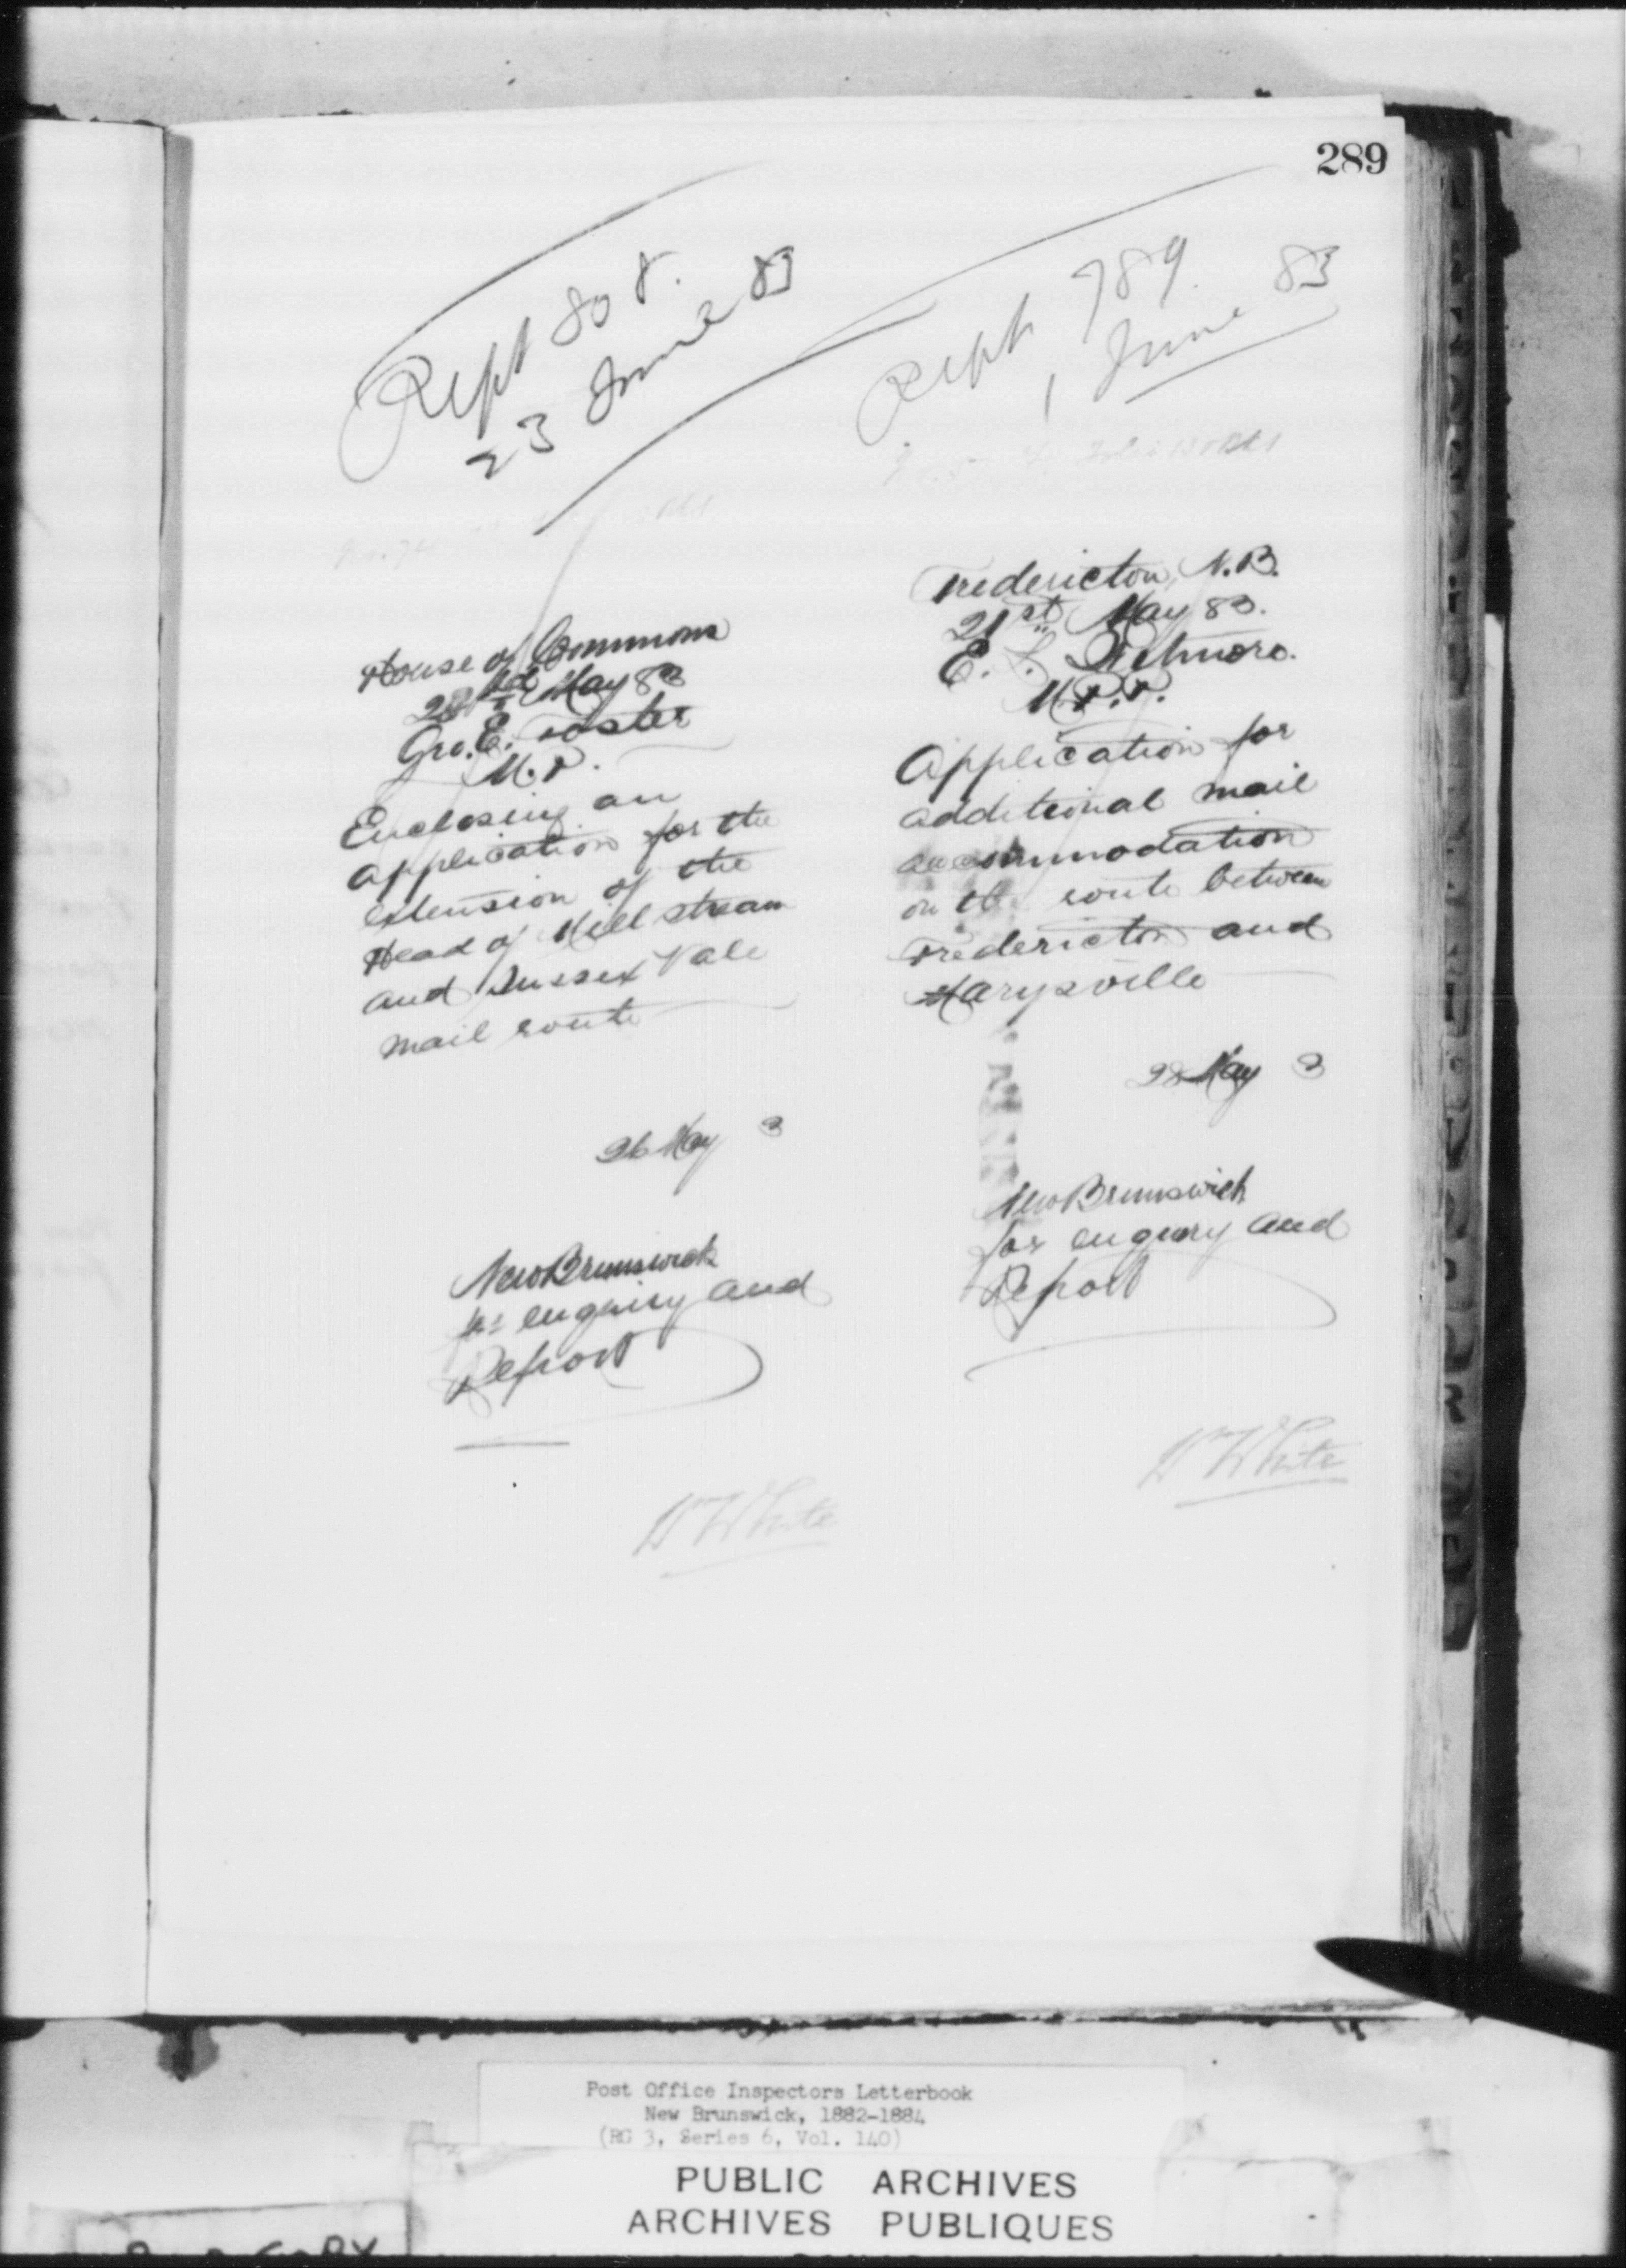 289
Rept 808.
23 June 83
House of Commons
May 83
Geo. E. Foster
M.P.
Enclosing an
application for the
extension of the
Head of Mill stream
and Sussex Vale
mail route
26 May 3
New Brunswick
for enquiry and
Report
W White
Rept 789.
1 June 83
Fredericton, N.B.
21st May 83.
E. L. Wetmore.
M.P.P.
Application for
additional mail
accommodation
on the route between
Fredericton and
Marysville
28 May 3
New Brunswick
for enquiry and
Report
W White
Post Office Inspectors Letterbook
New Brunswick, 1882-1884
(RG 3, Series 6, Vol. 140)
PUBLIC ARCHIVES
ARCHIVES PUBLIQUES
COPY